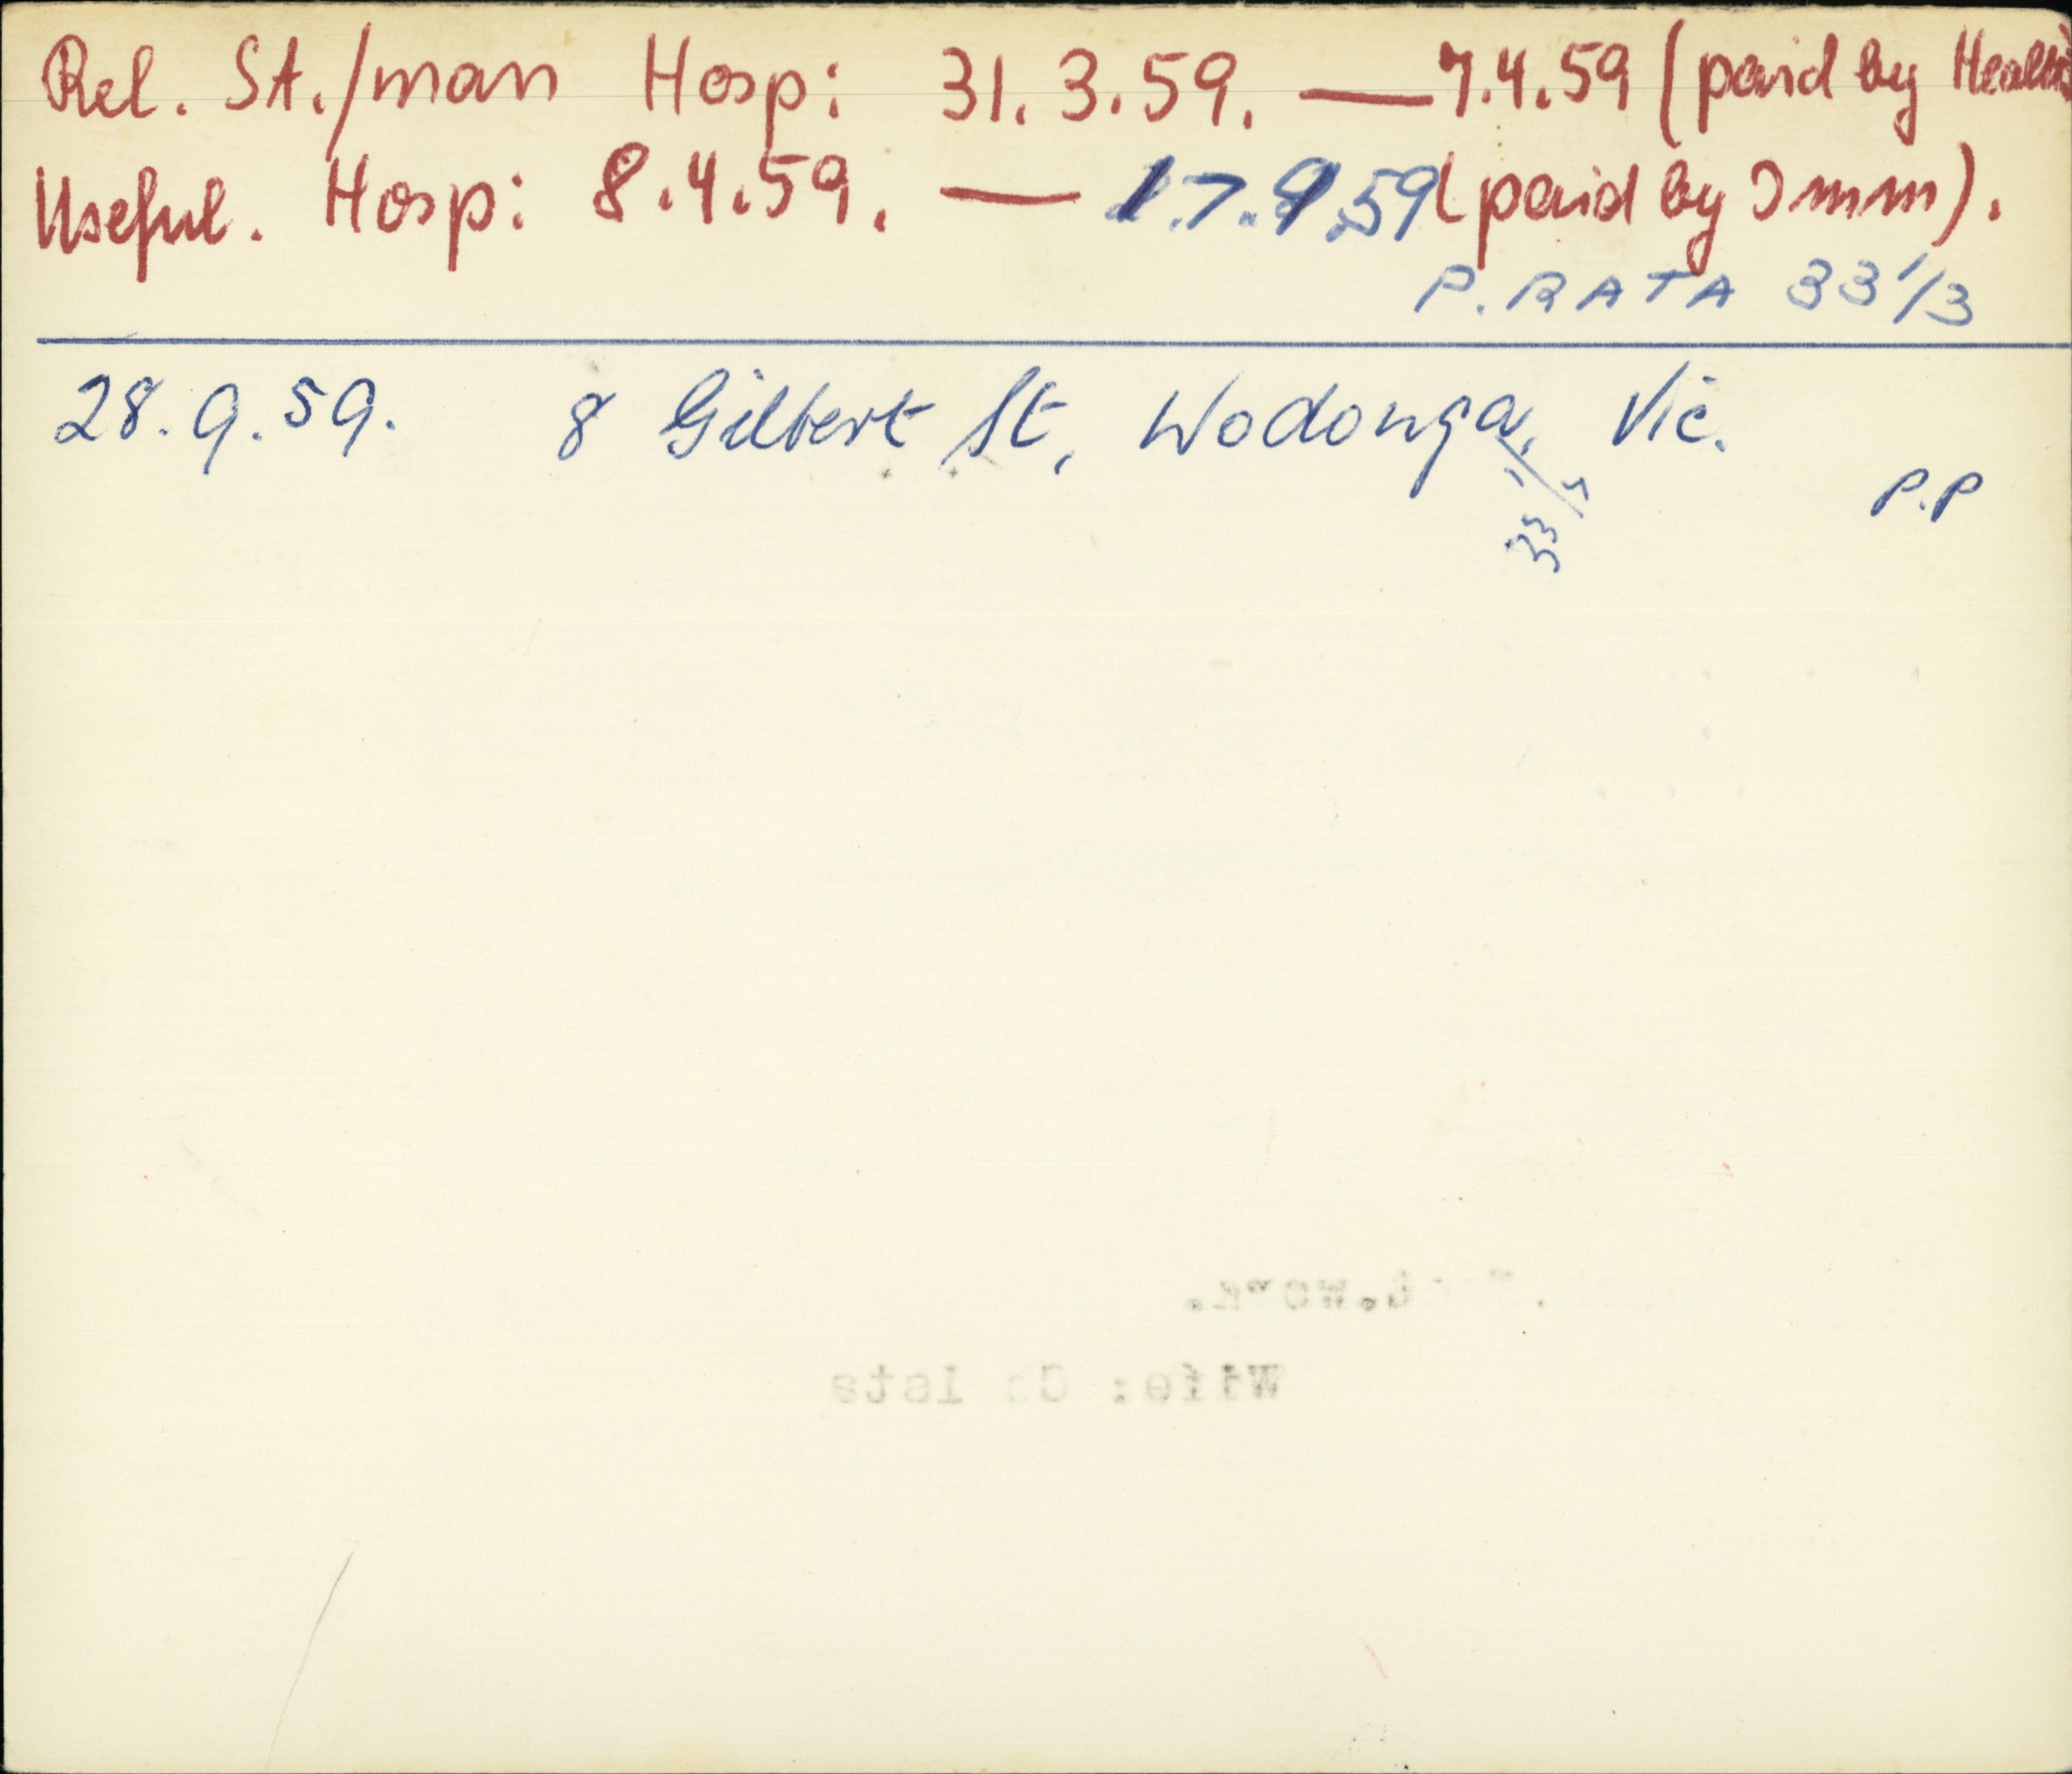 Rel. St./man Hosp: 31.3.59. — 7.4.59 (paid by Health)
Useful. Hosp: 8.4.59. — 17.9.59 (paid by Imm).
P. RATA 33 1/3
28.9.59. 8 Gilbert St, Wodonga, Vic.
33 1/3
P.P
Wife: